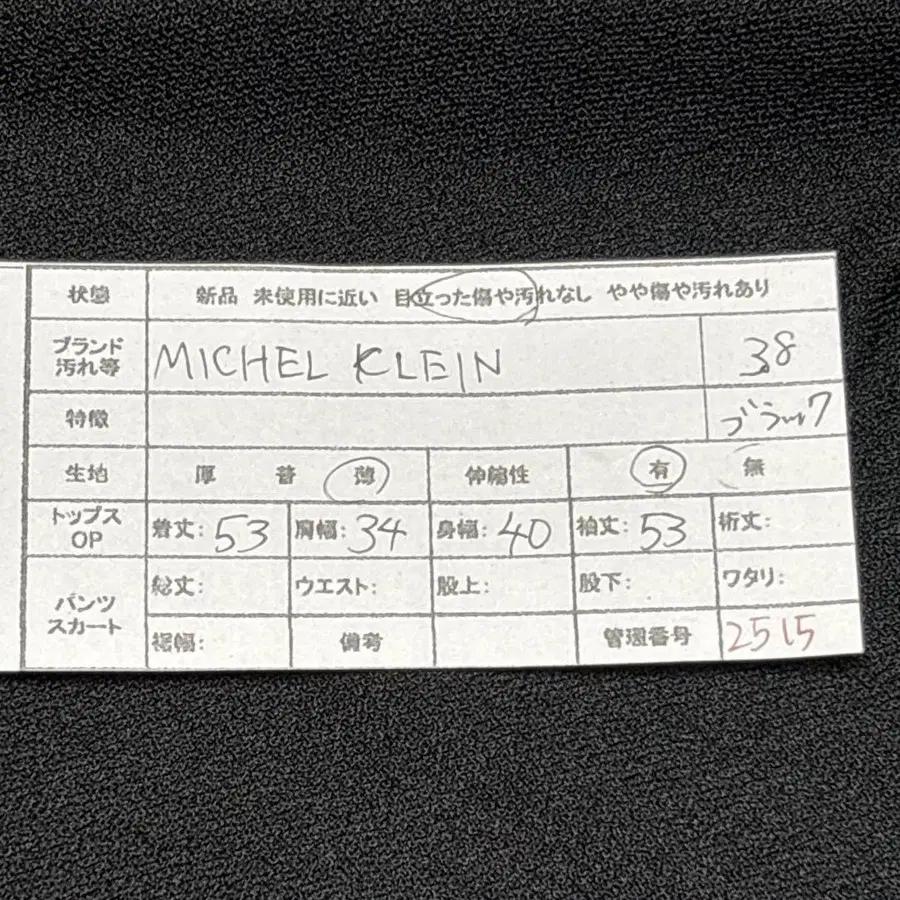 状態 新品 未使用に近い 目立った傷や汚れなし やや傷や汚れあり
ブランド
汚れ等 MICHEL KLEIN 38
特徴 ブラック
生地 厚 普 薄 伸縮性 有 無
トップス
OP 着丈: 53 肩幅: 34 身幅: 40 袖丈: 53 裄丈:
パンツ
スカート 総丈: ウエスト: 股上: 股下: ワタリ:
裾幅: 備考 管理番号 2515